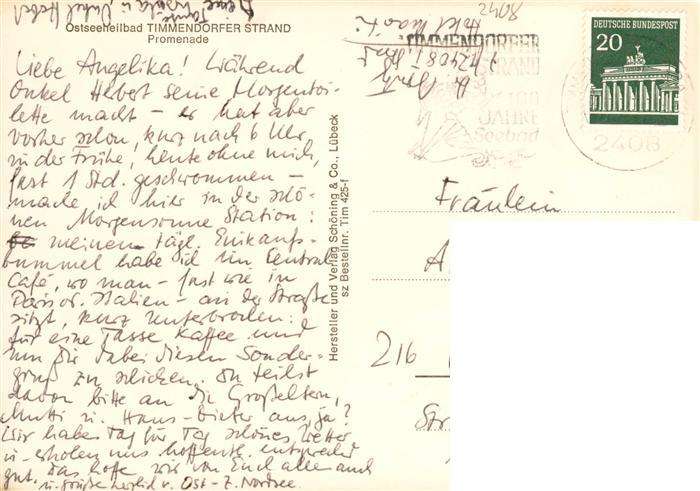 Ostseeheilbad TIMMENDORFER STRAND
Promenade
Liebe Angelika! Während
Onkel Hebert seine Morgentoi-
lette macht – er hat aber
vorher schon, kurz nach 6 Uhr,
in der Frühe, heute ohne mich,
fast 1 Std. geschwommen –
mache ich hier in der schö-
nen Morgensonne Station:
meinen tägl. Einkaufs-
bummel habe ich im Central
Café, wo man – fast wie in
Paris od. Italien – an der Straße
sitzt, kurz unterbrochen:
für eine Tasse Kaffee und
um Dir dabei diesen Sonder-
gruß zu schicken. Du teilst
davon bitte an die Großeltern,
Mutti u. Hans-Dieter aus, ja?
Wir haben Tag für Tag schönes Wetter
u. erholen uns hoffentl. entsprechend
gut. Das hoffe wir von Euch alle auch
u. grüße herzlich v. Ost – z. Nordsee.
Deine Tante
u. Onkel Hebert
Hersteller und Verlag Schöning & Co., Lübeck
sz Bestellnr. Tim 425-f
TIMMENDORFER
STRAND
JAHRE
Seebad
2408
DEUTSCHE BUNDESPOST
20
Fräulein
A
216
Str